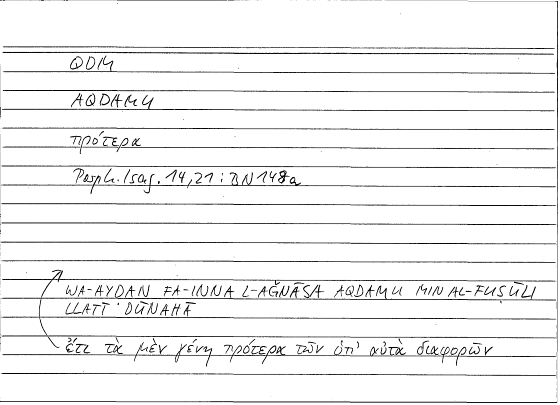 QDM
AQDAMU
πρότερα
Porph. Isag. 14,21 : BN 148a
WA-AYḌAN FA-INNA L-AǦNĀSA AQDAMU MIN AL-FUṢŪLI
LLATĪ DŪNAHĀ
ἔτι τὰ μὲν γένη πρότερα τῶν ὑπ' αὐτὰ διαφορῶν